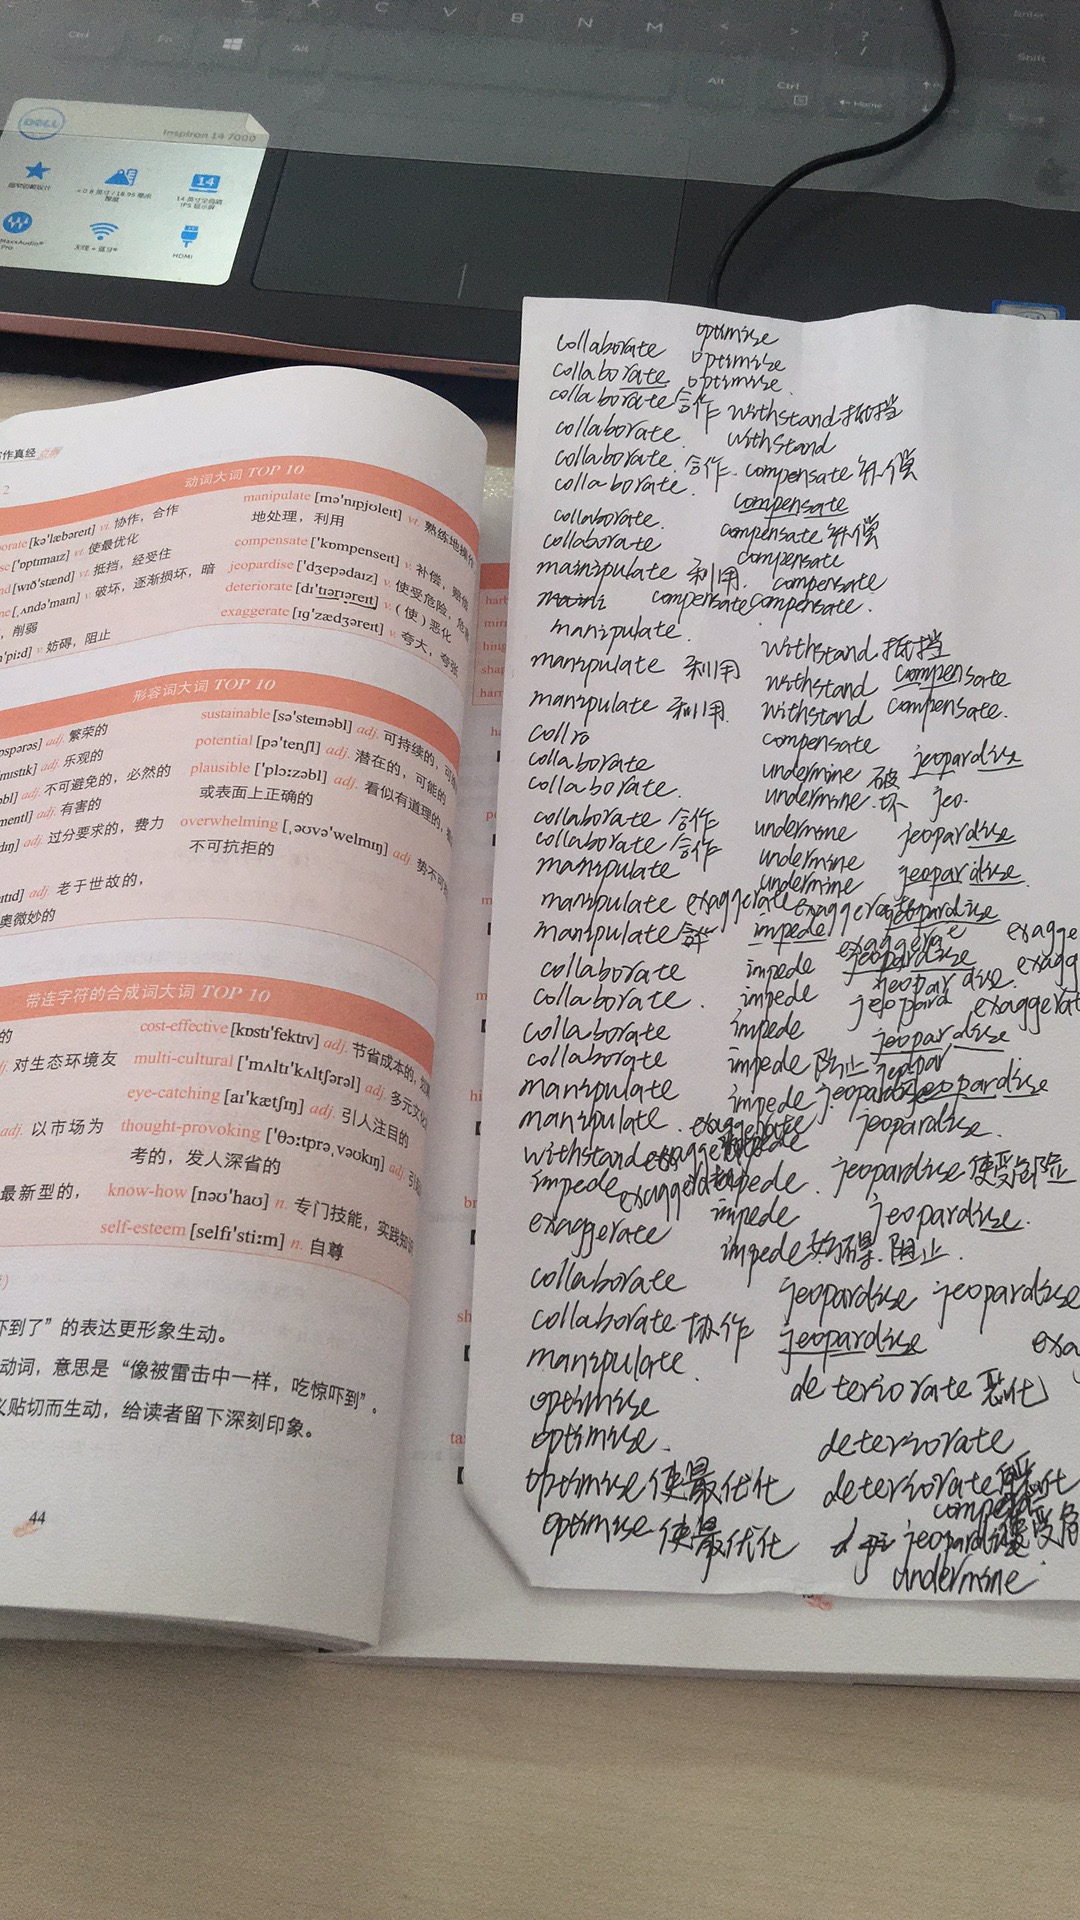 Ctrl Fn Alt C X V B N M < > ? / Enter
Alt Ctrl Home Shift
DELL
Inspiron 14 7000
14
<0.8 英寸/18.95 毫米
14 英寸全高清
厚度
IPS 显示屏
MaxxAudio®
Pro
无线 + 蓝牙®
HDMI
作真经
2
动词大词 TOP 10
orate [kə'læbəreɪt] vi. 协作，合作
se ['ɒptɪmaɪz] vt. 使最优化
nd [wɪð'stænd] vt. 抵挡，经受住
ne [ˌʌndə'maɪn] v. 破坏，逐渐损坏，暗
，削弱
'piːd] v. 妨碍，阻止
manipulate [mə'nɪpjʊleɪt] vt. 熟练地操作
地处理，利用
compensate ['kɒmpenseɪt] v. 补偿，赔偿
jeopardise ['dʒepədaɪz] v. 使受危险，危
deteriorate [dɪ'tɪərɪəreɪt] v. (使) 恶化
exaggerate [ɪg'zædʒəreɪt] v. 夸大，夸张
形容词大词 TOP 10
ɒspərəs] adj. 繁荣的
mɪstɪk] adj. 乐观的
əbl] adj. 不可避免的，必然的
mentl] adj. 有害的
dɪŋ] adj. 过分要求的，费力
eɪtɪd] adj. 老于世故的，
奥微妙的
sustainable [sə'steɪnəbl] adj. 可持续的，可
potential [pə'tenʃl] adj. 潜在的，可能的
plausible ['plɔːzəbl] adj. 看似有道理的，
或表面上正确的
overwhelming [ˌəʊvə'welmɪŋ] adj. 势不可
不可抗拒的
带连字符的合成词大词 TOP 10
的
j. 对生态环境友
adj. 以市场为
最新型的，
cost-effective [kɒstɪ'fektɪv] adj. 节省成本的，
multi-cultural ['mʌltɪ'kʌltʃərəl] adj. 多元文化
eye-catching [aɪ'kætʃɪŋ] adj. 引人注目的
thought-provoking ['θɔːtprəˌvəʊkɪŋ] adj. 引起
考的，发人深省的
know-how [nəʊ'haʊ] n. 专门技能，实践知识
self-esteem [selfɪ'stiːm] n. 自尊
吓到了”的表达更形象生动。
动词，意思是“像被雷击中一样，吃惊吓到”。
义贴切而生动，给读者留下深刻印象。
44
collaborate optimise
collaborate optimise
collaborate 合作 optimise
collaborate withstand 抵挡
collaborate 合作 withstand
collaborate compensate 补偿
collaborate compensate
collaborate compensate 补偿
mainipulate 利用 compensate
compensate
compensate compensate
manipulate
manipulate 利用 withstand 抵挡
manipulate 利用 withstand compensate
collro withstand compensate
collaborate compensate
collaborate undermine 破 jeopardise
collaborate 合作 undermine 坏 jeo.
collaborate 合作 undermine jeopardise
manipulate undermine
undermine jeopardise
manipulate exaggerate exaggerate jeopardise
manipulate 合作 impede exaggerat exagge
collaborate impede jeopardise exagg
collaborate impede jeopardise exaggerat
collaborate impede jeoppard
collaborate impede 阻止 jeopardise
manipulate impede jeopar jeopardise
manipulate exaggerate jeopardise
withstand exaggerate impede
impede exaggerate impede jeopardise 使受危险
exaggerate impede jeopardise
impede 妨碍.阻止
collaborate jeopardise jeopardise
collaborate 协作 jeopardise exa
manipulate
optimise deteriorate 恶化
optimise deteriorate
optimise 使最优化 deteriorate 恶化
optimise 使最优化 jeopardise 使受危
undermine